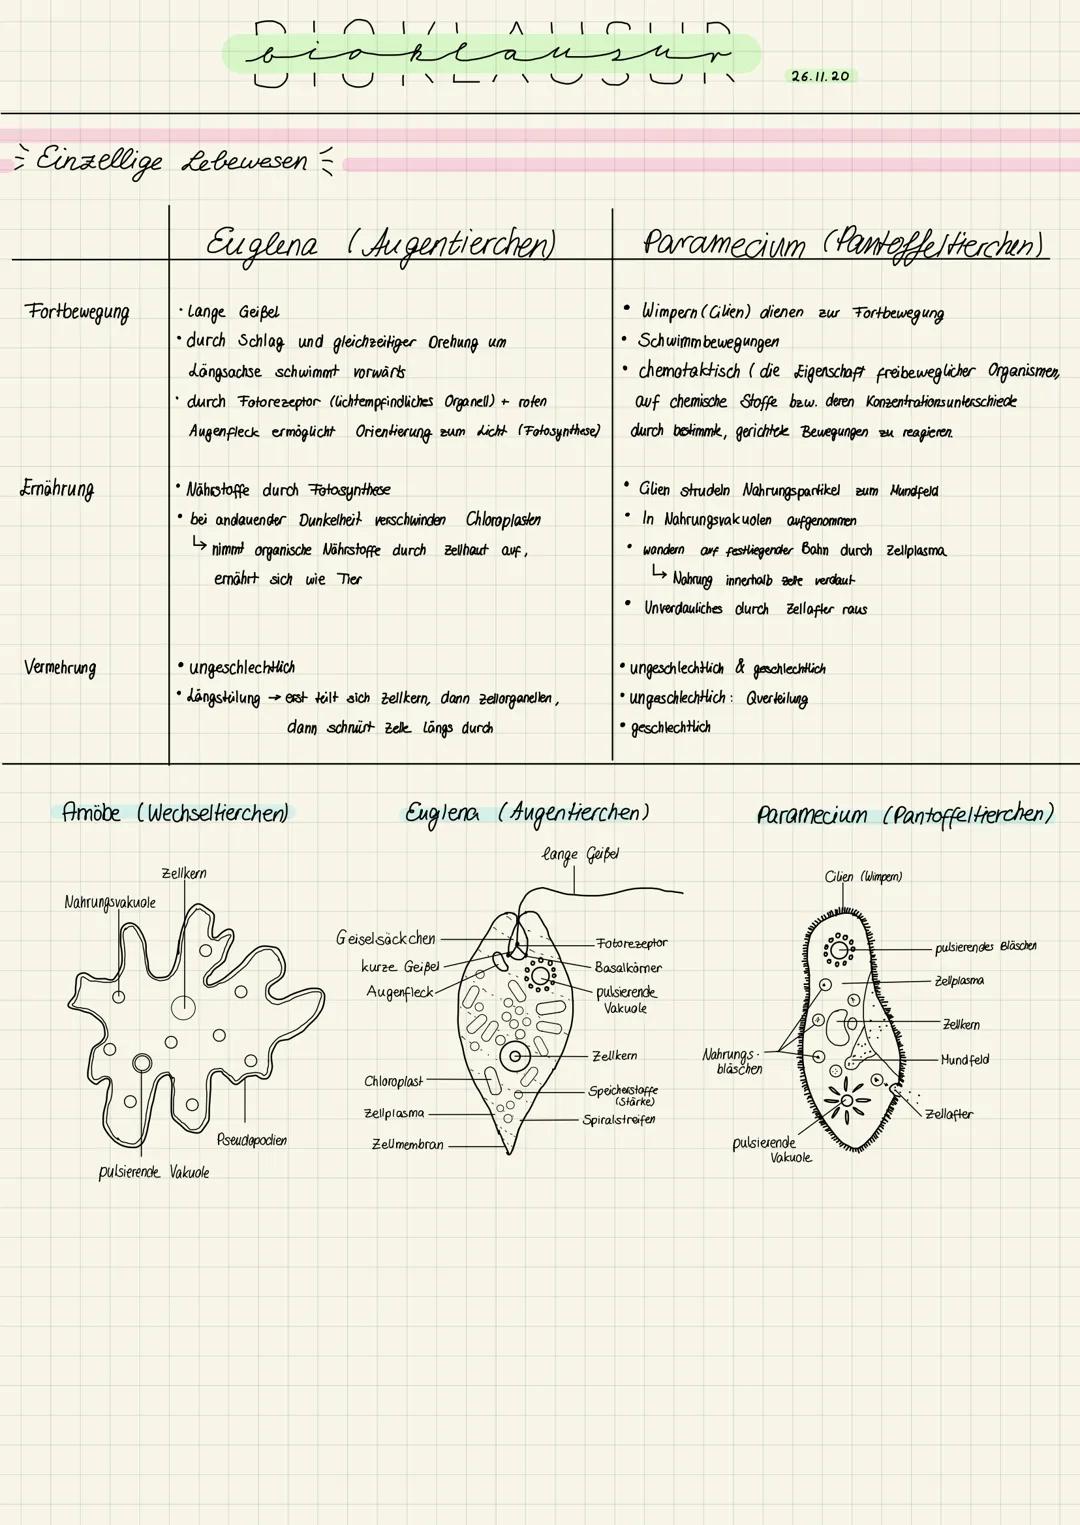 BIOKLAUSUR
bioklausur
26.11.20
Einzellige Lebewesen
Euglena (Augentierchen)
Paramecium (Pantoffeltierchen)
Fortbewegung
· Lange Geißel
• durch Schlag und gleichzeitiger Drehung um
Längsachse schwimmt vorwärts
• durch Fotorezeptor (lichtempfindliches Organell) + roten
Augenfleck ermöglicht Orientierung zum Licht (Fotosynthese)
• Wimpern (Cilien) dienen zur Fortbewegung
• Schwimmbewegungen
• chemotaktisch (die Eigenschaft freibeweglicher Organismen,
auf chemische Stoffe bzw. deren Konzentrationsunterschiede
durch bestimmte, gerichtete Bewegungen zu reagieren.
Ernährung
• Nährstoffe durch Fotosynthese
• bei andauernder Dunkelheit verschwinden Chloroplasten
↳ nimmt organische Nährstoffe durch Zellhaut auf,
ernährt sich wie Tier
• Cilien strudeln Nahrungspartikel zum Mundfeld
• In Nahrungsvakuolen aufgenommen
• wandern auf festliegender Bahn durch Zellplasma
↳ Nahrung innerhalb Zelle verdaut
• Unverdauliches durch Zellafter raus
Vermehrung
• ungeschlechtlich
• Längsteilung → erst teilt sich Zellkern, dann Zellorganellen,
dann schnürt Zelle längs durch
• ungeschlechtlich & geschlechtlich
• ungeschlechtlich: Querteilung
• geschlechtlich
Amöbe (Wechseltierchen)
Zellkern
Nahrungsvakuole
Pseudopodien
pulsierende Vakuole
Euglena (Augentierchen)
lange Geißel
Geiselsäckchen
kurze Geißel
Augenfleck
Fotorezeptor
Basalkörner
pulsierende
Vakuole
Zellkern
Chloroplast
Speicherstoffe
(Stärke)
Zellplasma
Spiralstreifen
Zellmembran
Paramecium (Pantoffeltierchen)
Cilien (Wimpern)
pulsierendes Bläschen
Zellplasma
Zellkern
Nahrungs-
bläschen
Mundfeld
Zellafter
pulsierende
Vakuole